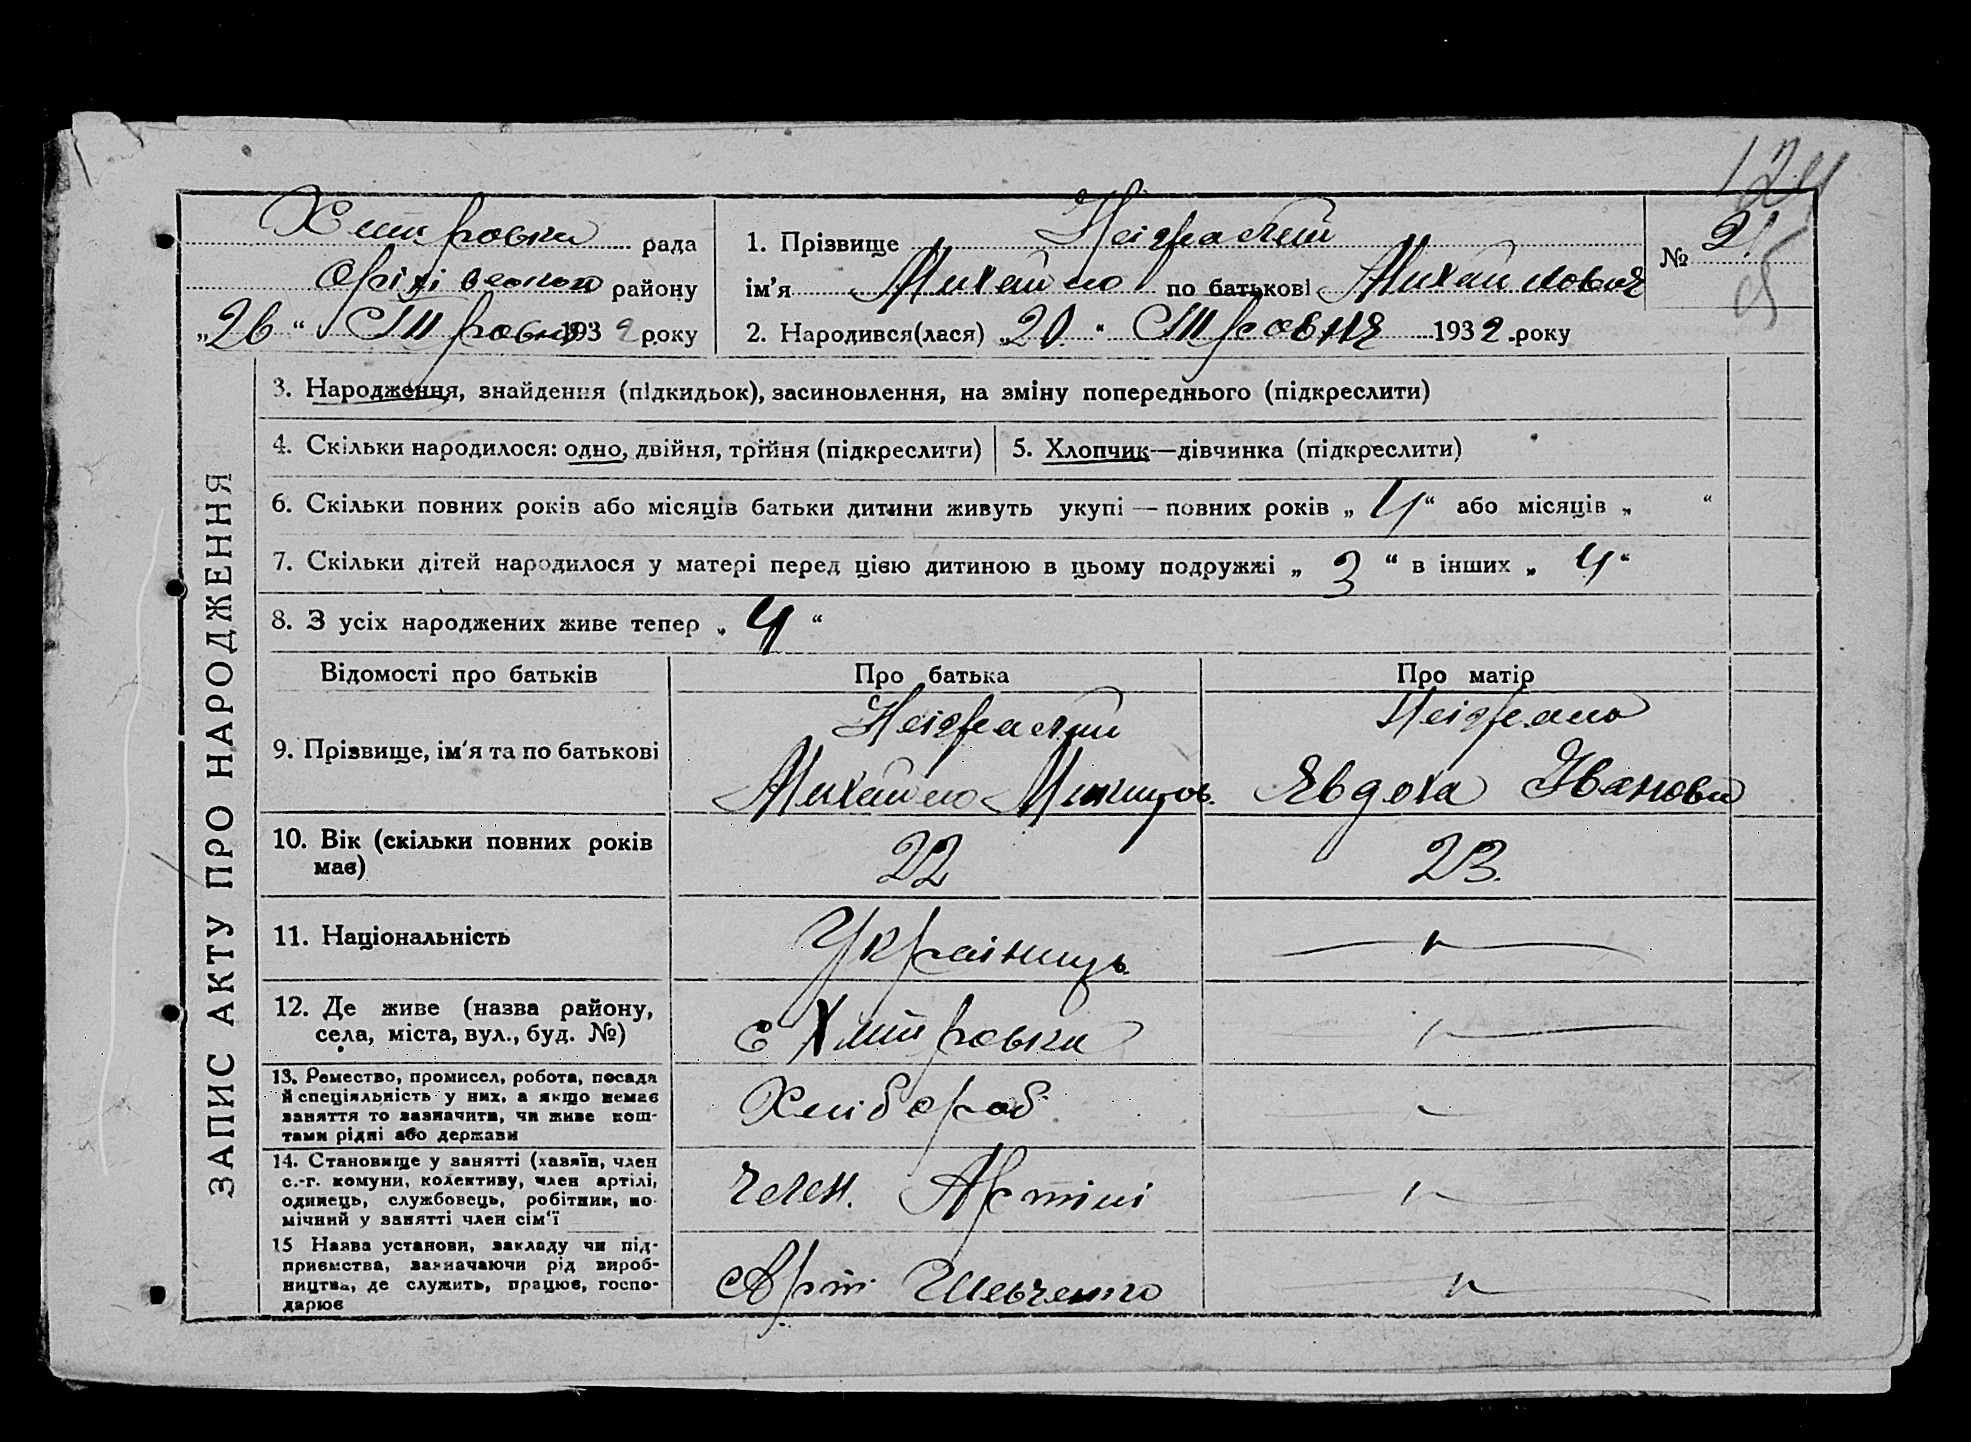 124
Хитровка рада
району
„26“ Травня 1932 року
1. Прізвище
ім'я Михайло по батькові Михайлович
№ 21
2. Народився(лася) „20“ Травня 1932 року
ЗАПИС АКТУ ПРО НАРОДЖЕННЯ
3. Народження, знайдення (підкидьок), засиновлення, на зміну попереднього (підкреслити)
4. Скільки народилося: одно, двійня, трійня (підкреслити)
5. Хлопчик—дівчинка (підкреслити)
6. Скільки повних років або місяців батьки дитини живуть укупі — повних років „4“ або місяців „ “
7. Скільки дітей народилося у матері перед цією дитиною в цьому подружжі „3“ в інших „4“
8. З усіх народжених живе тепер „4“
Відомості про батьків Про батька Про матір
9. Прізвище, ім'я та по батькові
Михайло Явдоха Іванови
10. Вік (скільки повних років має) 22 23.
11. Національність Українець
12. Де живе (назва району, села, міста, вул., буд. №) с Хитровка
13. Ремество, промисел, робота, посада
й спеціяльність у них, а якщо немає
заняття то зазначити, чи живе кош-
тами рідні або держави
Хлібороб
14. Становище у занятті (хазяїн, член
с.-г. комуни, колективу, член артілі,
одинець, службовець, робітник, по-
мічний у занятті член сім'ї
член. Артілі
15 Назва установи, закладу чи під-
приємства, зазначаючи рід вироб-
ництва, де служить, працює, госпо-
дарює
Арт Шевченко